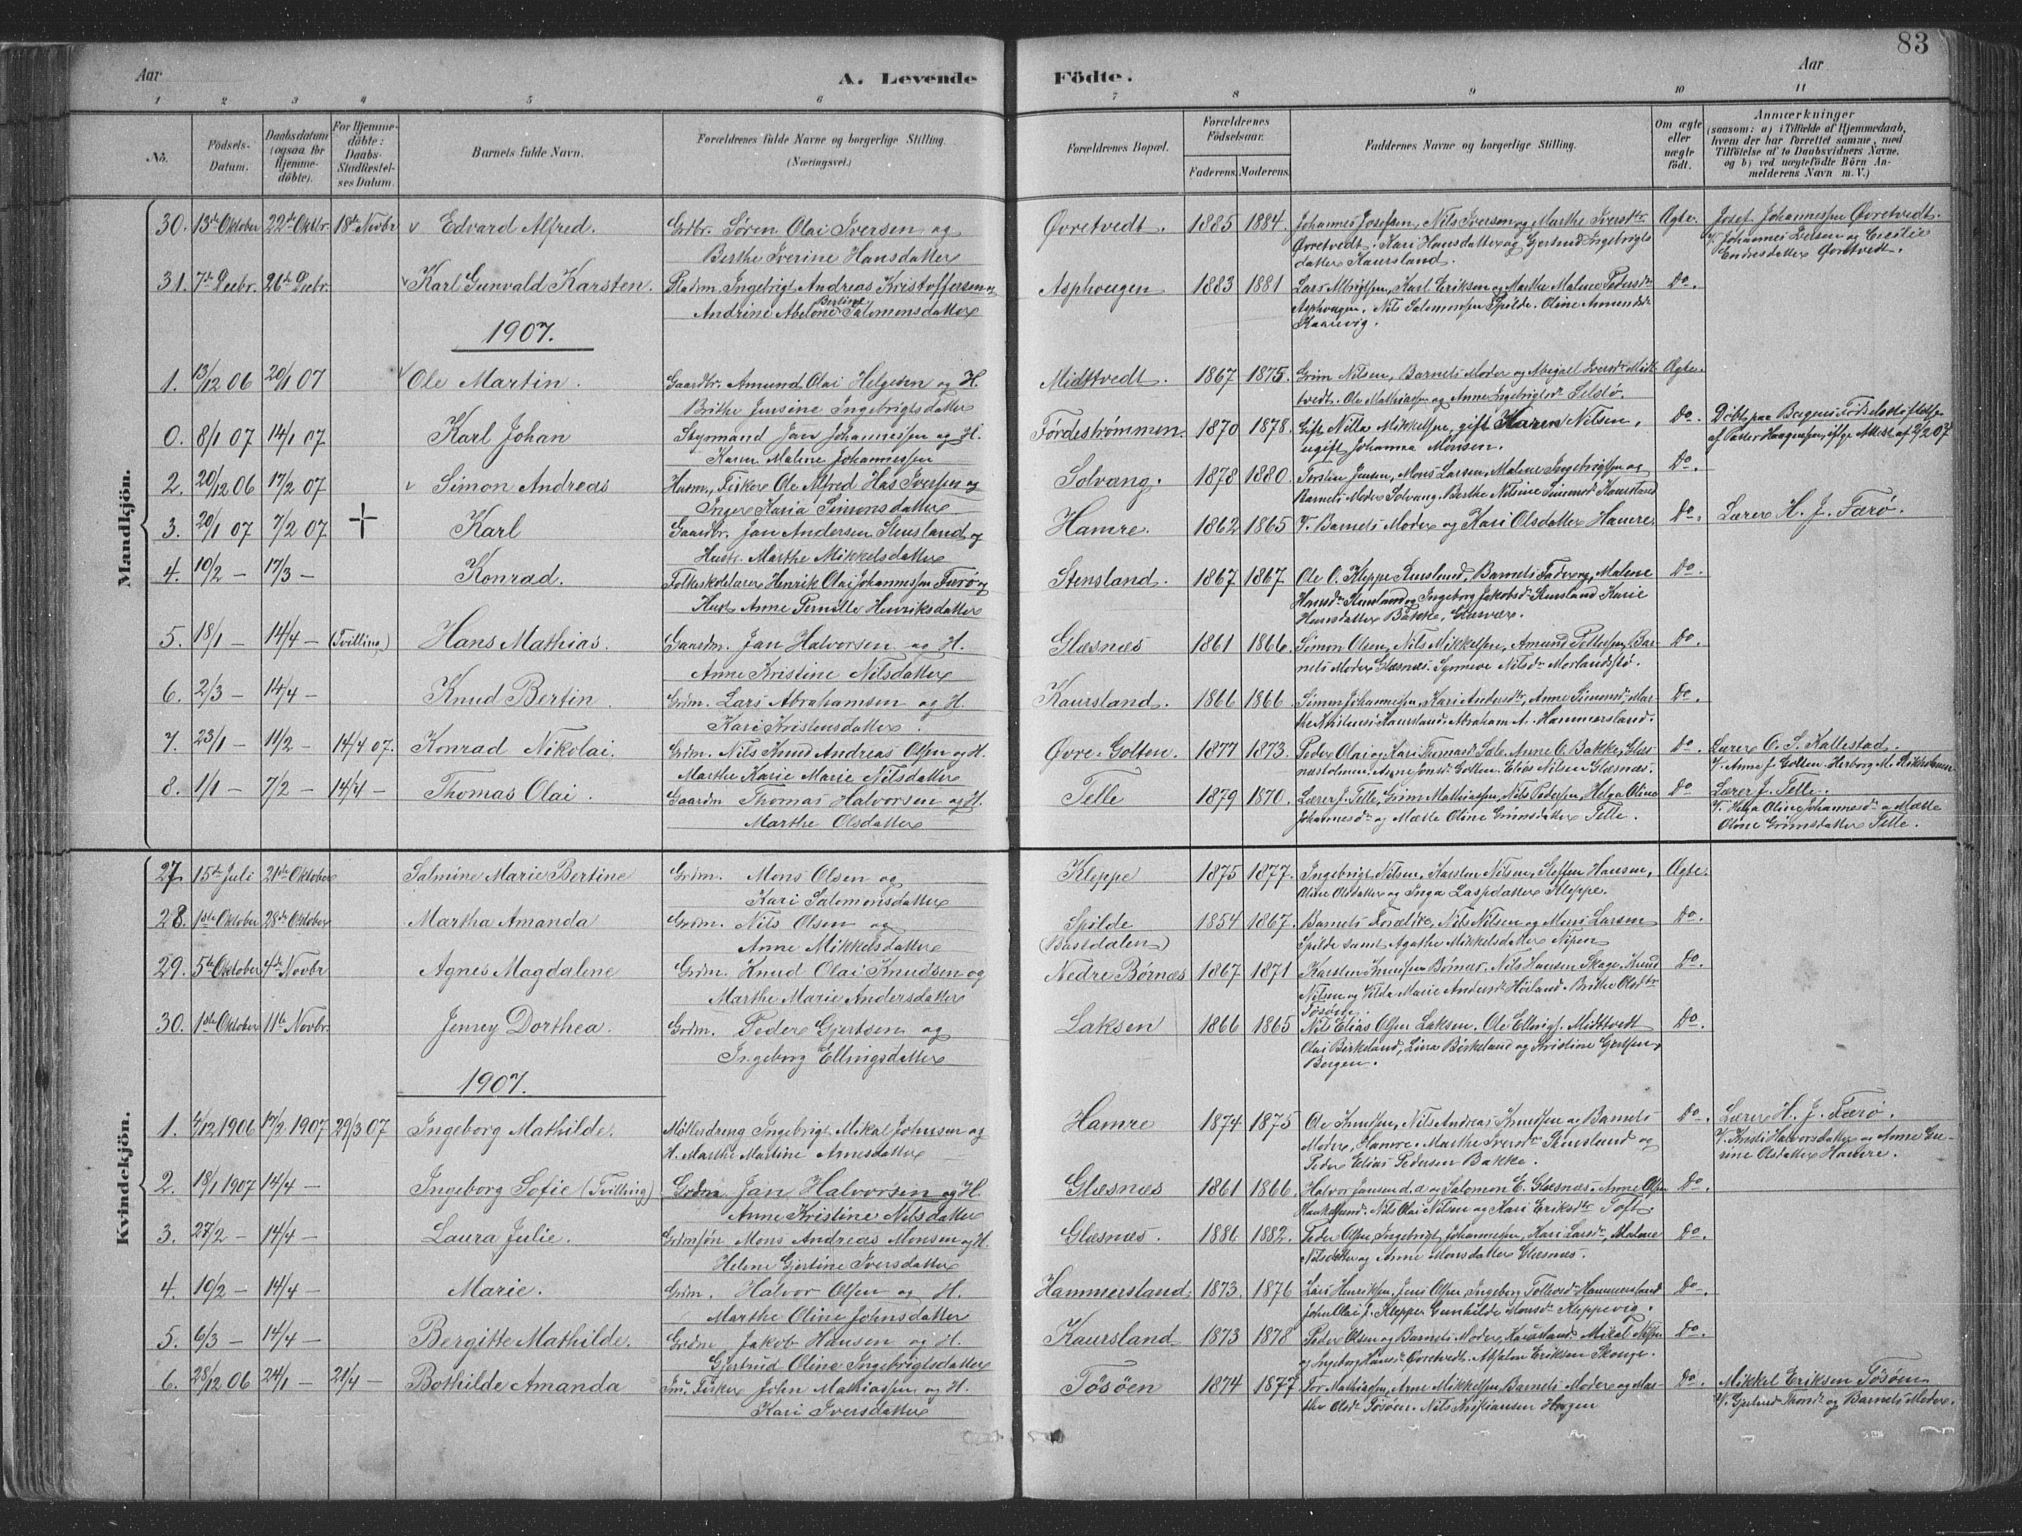 83
Aar
A. Levende Födte.
Aar
1 2 3 4 5 6 7 8 9 10 11
No.
Födsels-Datum.
Daabsdatum (ogsaa for Hjemme-döbte).
For Hjemme-döbte: Daabs-Stadfæstel-ses Datum.
Barnets fulde Navn.
Forældrenes fulde Navne og borgerlige Stilling. (Næringsvei.)
Forældrenes Bopæl.
Forældrenes Födselsaar.
Faderens. Moderens.
Faddernes Navne og borgerlige Stilling.
Om ægte eller uægte födt.
Anmærkninger
(saasom: a) i Tilfælde af Hjemmedaab, hvem der har forrettet samme, med Tilföielse af to Daabsvidners Navne, og b) ved uægtefödte Börn An-melderens Navn m. V.)
Mandkjön.
30. 13de Oktober 22de Oktbr. 18de Novbr v Edvard Alfred. Grbr. Sören Olai Iversen og
Berthe Iverine Hansdatter
Øvretvedt. 1885 1884. Johannes Josefsen, Nils Iversen og Marthe Iversdtr Ægte. Josef Johannessen Øvretvedt.
Øvretvedt. Kari Hansdatter og Gjertrud Ingebrigts
datter Kaursland.
V. Johannes Larsen og Cecilie
Endresdatter Øvretvedt.
31. 7de Decbr. 26de Decbr. v Karl Gunvald Karsten. Pladsm. Ingebrigt Andreas Kristoffersen og
Andrine Abelone Bertine Salomonsdatter
Asphougen 1883 1881 Lars Mbrigtsen, Karl Eriksen og Marthe Malene Pedersdr Do.
Asphougen, Nils Salomonsen Spilde. Oline Amundsdr
Kaarevig.
1907.
1. 13/12 06 20/1 07 v Ole Martin. Gaardbr. Amund Olai Helgesen og H.
Brithe Jensine Ingebrigtsdatter
Midttvedt. 1867 1875. Grim Nilsen, Barnets Moder og Abigael Iversdtr Midt Ægte.
tvedt. Ole Mathiassen og Anne Ingebrigtsdr Selstø.
0. 8/1 07 14/1 07 Karl Johan Styrmand Jan Johannessen og H.
Karen Maline Johannessen
Førdestrømmen. 1870 1878. Gift Nilla Mikkelsen, gift Karen Nilsen, Do.
ugift Johanna Monsen.
Døbt paa Bergens Fødselsstiftelse
af Pastor Haagensen, ifølge Attest af 2/2 07
2. 20/12 06 17/2 07 v Simon Andreas Husm., Fisker Ole Alfred Has Iversen og
Inger Karia Simonsdatter
Solvang. 1878 1880. Torsten Jensen, Mons Larsen, Malene Ingebrigtsen og Do.
Barnets Moder Solvang, Berthe Nilsine Simonsdr Kaursland
3. 20/1 07 7/2 07 + Karl Gaardbr. Jan Andersen Stensland og
Hustr. Marthe Mikkelsdatter
Hamre. 1862 1865 V. Barnets Moder og Kari Olsdatter Hamre. Do. Lærer H. J. Færø.
4. 10/2 — 17/3 — Konrad. Folkeskolelærer Henrik Olai Johannessen Færø og
Hust Anne Pernille Henriksdatter
Stensland. 1867 1867 Ole O. Kleppe Stensland, Barnets Fader og, Malene Do.
Hansdr Stensland og Ingeborg Jakobsdr Stensland Karie
Hansdatter Bakke, Glesvær.
5. 18/1 — 14/4 — (Tvilling) Hans Mathias. Gaardm. Jan Halvorsen og H.
Anne Kristine Nilsdatter
Glæsnæs 1861 1866. Simon Olsen, Nils Mikkelsen, Amund Pettersen, Bar- Do.
nets Moder Glæsnæs. Synneve Nilsdr Morlandstø.
6. 2/3 — 14/4 — Knud Bertin. Grdm. Lars Abrahamsen og H.
Kari Kristensdatter.
Kaursland. 1866 1866. Simon Johannessen, Kari Andersdtr, Anne Simonsdr, Mar- Do
Kaursland. Abraham A. Hammersland.
7. 23/1 — 11/2 — 14/4 07. Konrad Nikolai. Grdm. Nils Knud Andreas Olsen og H.
Marthe Karie Marie Nilsdatter
Øvre-Golten. 1877 1873. Peder Olai og Kari Thomasdr Sale. Anne O. Bakke, Glæs- Do.
næsholmen. Golten. Elias Nilsen Glæsnæs.
Lærer O. S. Kallestad.
V. Anne J. Golten. Herborg M.
8. 1/1 — 7/2 — 14/4 — Thomas Olai. Gaardm Thomas Halvorsen og H.
Marthe Olsdatter
Telle 1879 1870. Lærer J. Telle, Grim Mathiassen, Nils Pedersen, Helga Oline Do
Johannesdr og Mætte Oline Grimsdatter Telle.
Lærer J. Telle.
V. Helga Oline Johannesdr og Mætte
Oline Grimsdatter Telle.
Kvindekjön.
27 15de Juli 21de Oktober Salmine Marie Bertine Grdm. Mons Olsen og
Kari Salomonsdatter
Kleppe 1875 1877. Ingebrigt Nilsen, Karsten Nilsen, Steffen Hansen, Ægte.
Oline Olsdatter og Inga Lassedatter Kleppe.
28. 1ste Oktober 28de Oktober Martha Amanda Grdm. Nils Olsen og
Anne Mikkelsdatter
Spilde
(Bustdalen) 1854 1867. Barnets Forældre, Nils Nilsen og Mons Larsen Do
Spilde samt Agathe Mikkelsdatter Nipen
29. 5te Oktober 4de Novbr Agnes Magdalene Grdm. Knud Olai Knudsen og
Marthe Marie Andersdatter
Nedre Børnæs 1867 1871 Karsten Knudsen Børnæs. Nils Hansen Skage, Knud Do.
Nilsen og Vilda Marie Andersdr Høiland. Brithe Olsdtr
Tøsøen.
30. 1ste Oktober 11te Novbr. Jenny Dorthea. Grdm. Peder Gjertsen og
Ingeborg Ellingsdatter
Laksen 1866 1865 Nils Elias Olsen Laksen. Ole Ellings. Midttvedt Do.
Olai Birkeland, Lina Børkeland og Kristine Gjertsen,
Bergen.
1907.
1. 4/12 1906 17/2 1907 29/3 07 Ingeborg Mathilde. Møllerdreng Ingebrigt Mikal Johnsen og
H. Marthe Martine Arnesdatter
Hamre 1874 1875 Ole Knudsen, Nils Andreas Knudsen og Barnets Do.
Moder, Hamre. Marthe Iversdr Stensland og
Peder Elias Pedersen Bakke.
Lærer H. J. Færø.
V. Kristi Halvorsdatter og Anne Gu-
rine Olsdatter Hamre.
2. 18/1 1907 14/4 — Ingeborg Sofie (Tvilling) Grdm Jan Halvorsen og H.
Anne Kristine Nilsdatter
Glæsnæs 1861 1866. Halvor Jansen d. æ og Salomon E. Glæsnæs. Anne Olsen Do.
Nils Olai Nilsen og Kari Eriksdtr Toft.
3. 27/2 — 14/4 — Laura Julie. Grdmsøn Mons Andreas Monsen og H.
Helene Gjertine Iversdatter
Glæsnæs. 1886 1882. Peder Olsen, Ingebrigt Johannessen, Kari Larsdr, Malene Do.
Nilsdatter og Anne Monsdatter Glæsnæs.
4. 10/2 — 14/4 — Marie. Grdm. Halvor Olsen og H.
Marthe Oline Johnsdatter
Hammersland. 1873. 1876 Lars Henriksen, Jens Olsen, Ingeborg Tollevsdr Hammersland Do
John Olai J. Kleppe, Gunhilde Monsdr Kleppevig.
5. 6/3 — 14/4 — Bergitte Mathilde. Grdm Jakob Hansen og H.
Gjertrud Oline Ingebrigtsdatter
Kaursland 1873 1878 Peder Olsen og Barnets Moder Kaursland. Mikal Nilsen Do.
og Ingeborg Hansdr Øvretvedt. Absalon Eriksen Skouge.
6. 28/12 06 24/1 — 21/4 — Bothilde Amanda Fisker John Mathiassen og H.
Kari Iversdatter
Tøsøen 1874 1877 Tor Mathiassen, Arne Mikkelsen, Barnets Moder og Mar- Do.
the Olsdr Tøsøen. Nils Kristiansen Hagen
Mikkel Eriksen Tøsøen
V. Gjertrud Thorsdr og Barnets Moder.